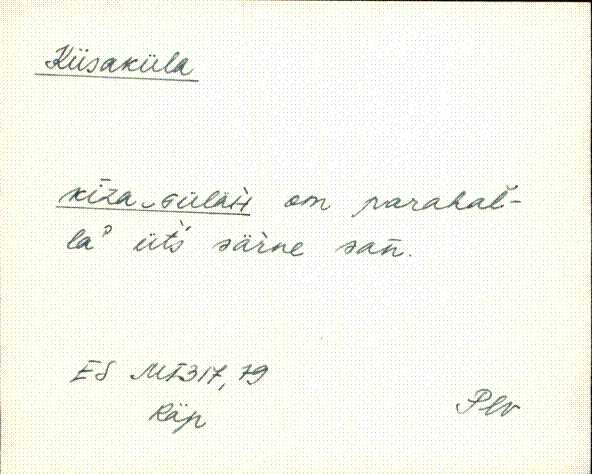 Kiisaküla
kīza‿Güläh om parahal̄-
la᾽ üt́s särne sań.
ES MT 317, 79
Räp
Plv